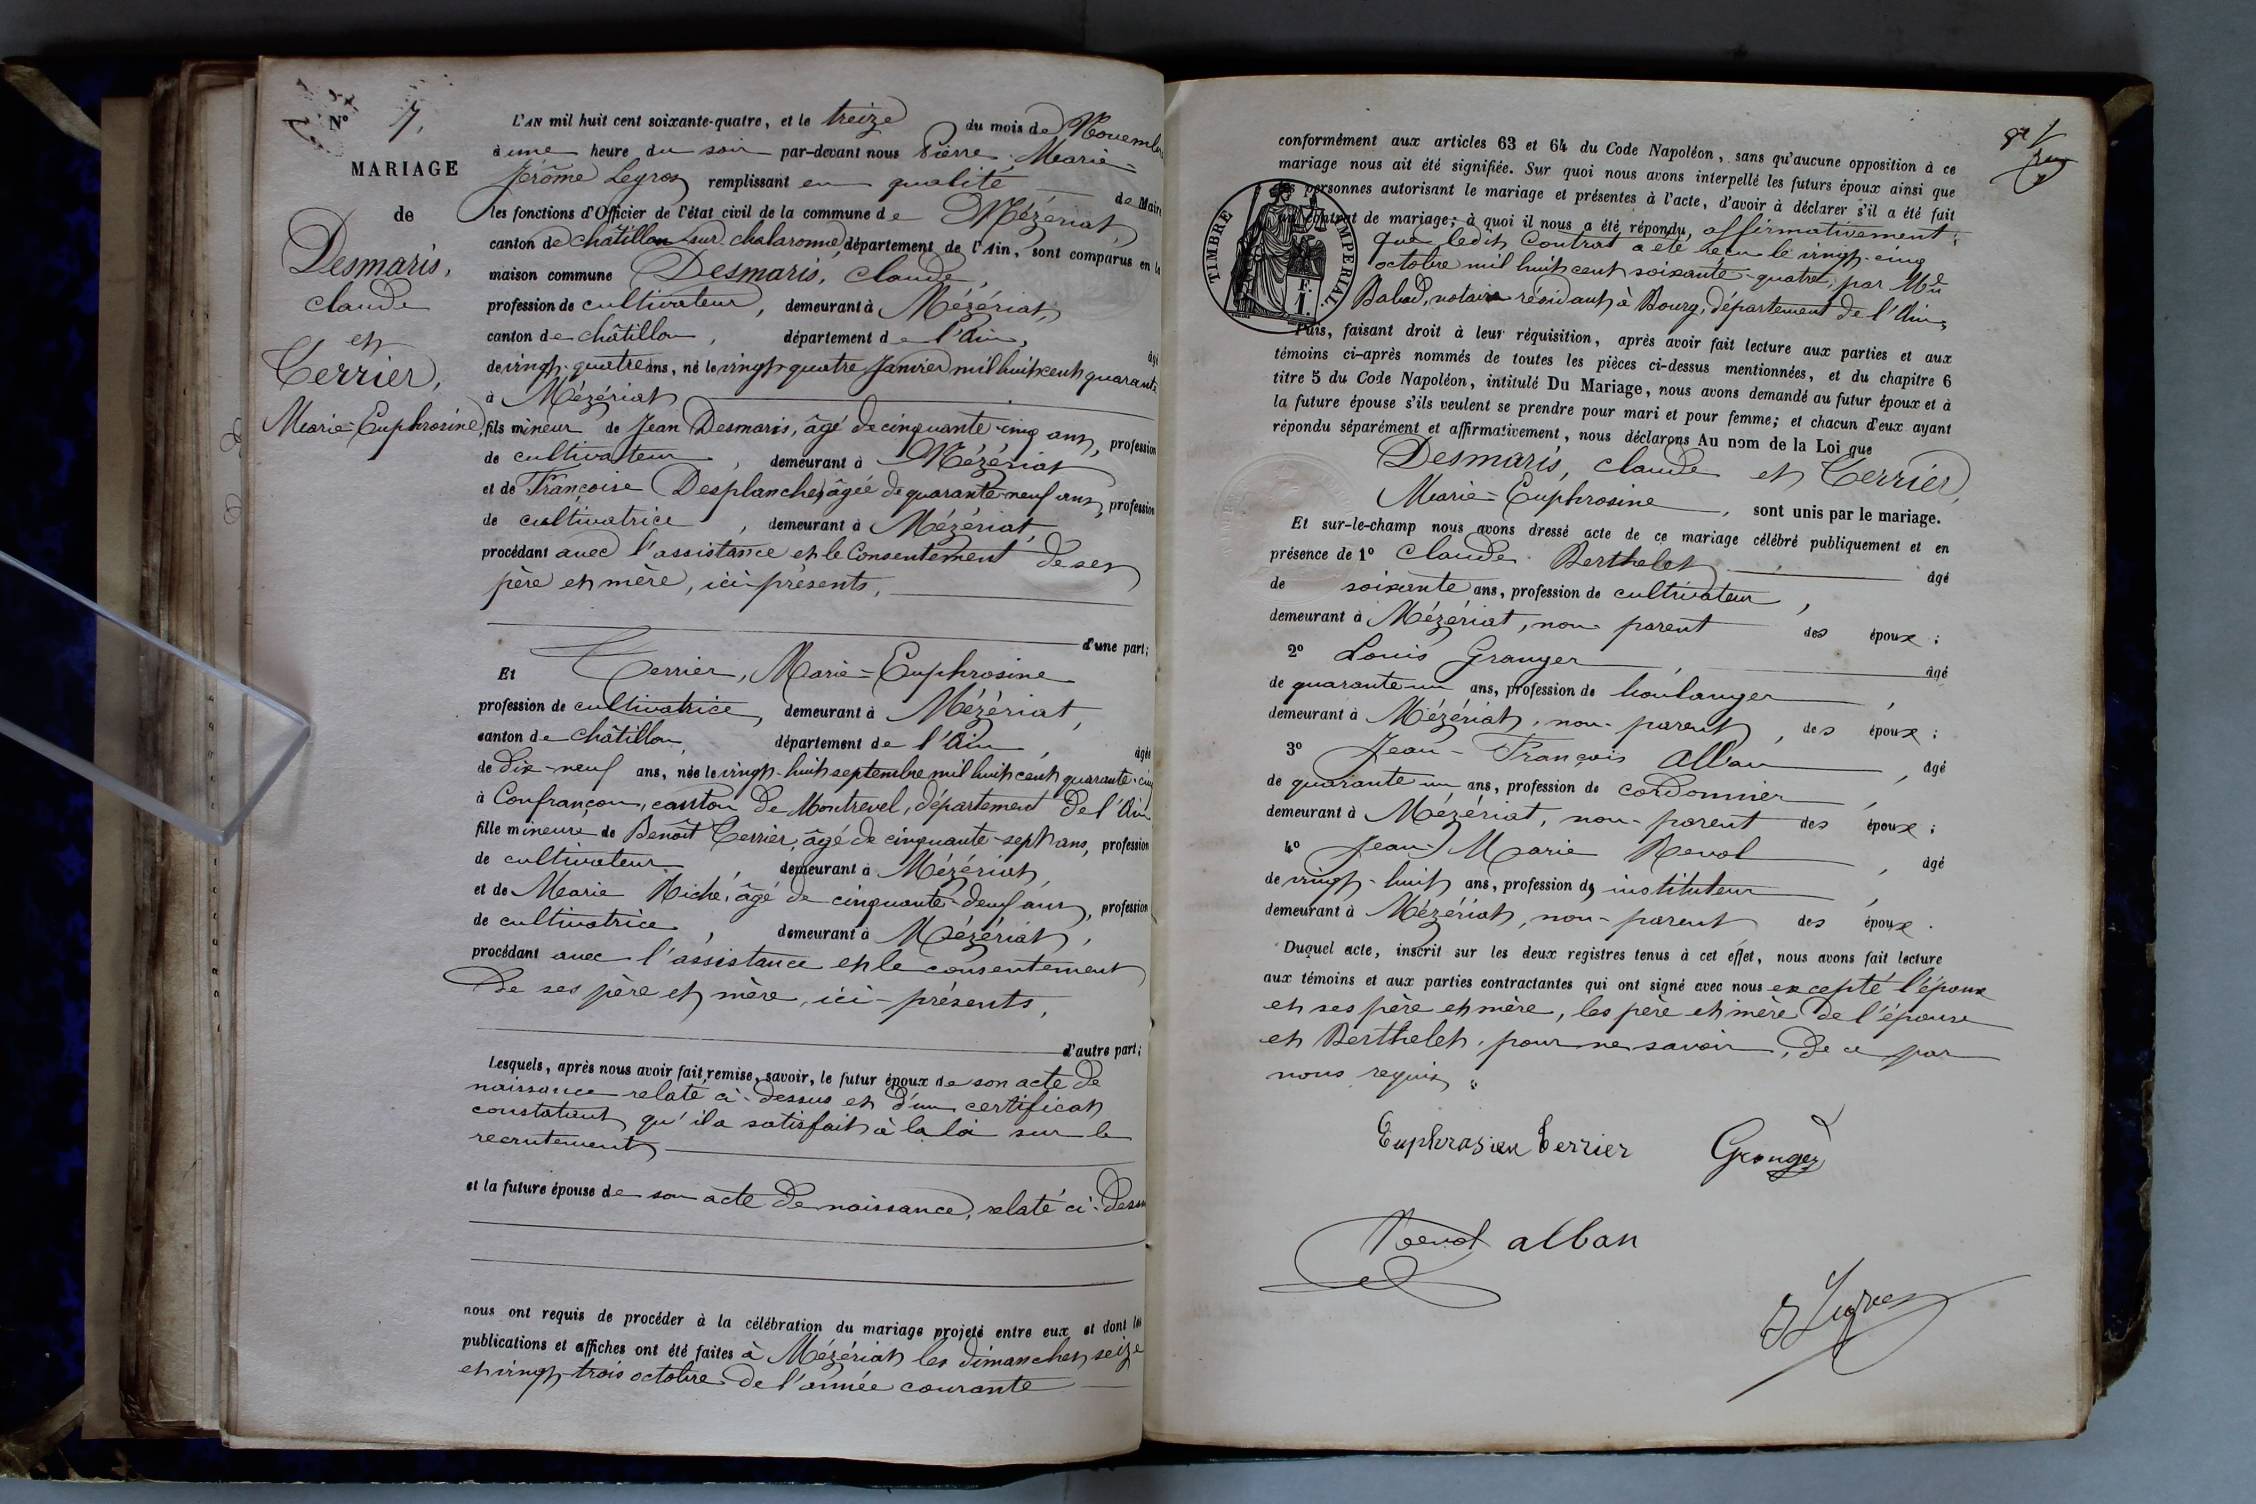 N° 7.
MARIAGE
de
Desmaris,
claude
et
Terrier,
Marie=Euphrosine,
L'AN mil huit cent soixante-quatre, et le treize du mois de Novembre
à une heure du soir par-devant nous Pierre Marie=
Jérôme Leyros remplissant en qualité de Maire
les fonctions d'Officier de l'état civil de la commune de Mézériat,
canton de châtillon sur chalaronne département de l'Ain, sont comparus en la
maison commune Desmaris, claude,
profession de cultivateur, demeurant à Mézériat,
canton de châtillon, département de l'Ain, âgé
de vingt-quatre ans, né le vingt-quatre Janvier mil huit cent quarante
à Mézériat
fils mineur de Jean Desmaris, âgé de cinquante-cinq ans, profession
de cultivateur, demeurant à Mézériat
et de Françoise Desplanches âgée de quarante-neuf ans, profession
de cultivatrice, demeurant à Mézériat,
procédant avec l'assistance et le Consentement de ses
père et mère, ici-présents,
d'une part;
Et Terrier, Marie=Euphrosine
profession de cultivatrice, demeurant à Mézériat,
canton de châtillon, département de l'Ain, âgée
de dix-neuf ans, née le vingt-huit septembre mil huit cent quarante-cinq
à Confrançon, canton de Montrevel, département de l'Ain
fille mineure de Benoît Terrier, âgé de cinquante-sept ans, profession
de cultivateur demeurant à Mézériat,
et de Marie Riché, âgé de cinquante-deux ans, profession
de cultivatrice, demeurant à Mézériat,
procédant avec l'assistance et le consentement
de ses père et mère, ici-présents,
d'autre part;
Lesquels, après nous avoir fait remise, savoir, le futur époux de son acte de
naissance relaté ci-dessus et d'un certificat
constatant qu'il a satisfait à la loi sur le
recrutement
et la future épouse de son acte de naissance, relaté ci-dessus
nous ont requis de procéder à la célébration du mariage projeté entre eux et dont les
publications et affiches ont été faites à Mézériat les dimanches seize
et vingt-trois octobre de l'année courante
conformément aux articles 63 et 64 du Code Napoléon, sans qu'aucune opposition à ce
mariage nous ait été signifiée. Sur quoi nous avons interpellé les futurs époux ainsi que
les personnes autorisant le mariage et présentes à l'acte, d'avoir à déclarer s'il a été fait
un contrat de mariage; à quoi il nous a été répondu, affirmativement;
que ledit Contrat a été reçu le vingt-cinq
octobre mil huit cent soixante-quatre, par
Babad, notaire résidant à Bourg, département de l'Ain,
TIMBRE IMPERIAL.
F.
1.
Puis, faisant droit à leur réquisition, après avoir fait lecture aux parties et aux
témoins ci-après nommés de toutes les pièces ci-dessus mentionnées, et du chapitre 6
titre 5 du Code Napoléon, intitulé Du Mariage, nous avons demandé au futur époux et à
la future épouse s'ils veulent se prendre pour mari et pour femme; et chacun d'eux ayant
répondu séparément et affirmativement, nous déclarons Au nom de la Loi que
Desmaris, claude et Terrier,
Marie=Euphrosine, sont unis par le mariage.
Et sur-le-champ nous avons dressé acte de ce mariage célébré publiquement et en
présence de 1° claude Berthelet, âgé
de soixante ans, profession de cultivateur,
demeurant à Mézériat, non-parent des époux;
2° Louis Granger, âgé
de quarante un ans, profession de boulanger,
demeurant à Mézériat, non-parent, des époux;
3° Jean-François Alban, âgé
de quarante un ans, profession de cordonnier,
demeurant à Mézériat, non-parent des époux;
4° Jean Marie Revol, âgé
de vingt-huit ans, profession de instituteur,
demeurant à Mézériat, non-parent des époux.
Duquel acte, inscrit sur les deux registres tenus à cet effet, nous avons fait lecture
aux témoins et aux parties contractantes qui ont signé avec nous excepté l'époux
et ses père et mère, les père et mère de l'épouse
et Berthelet, pour ne savoir, de ce par
nous requis.
Euphrasien terrier Granger
Revol alban